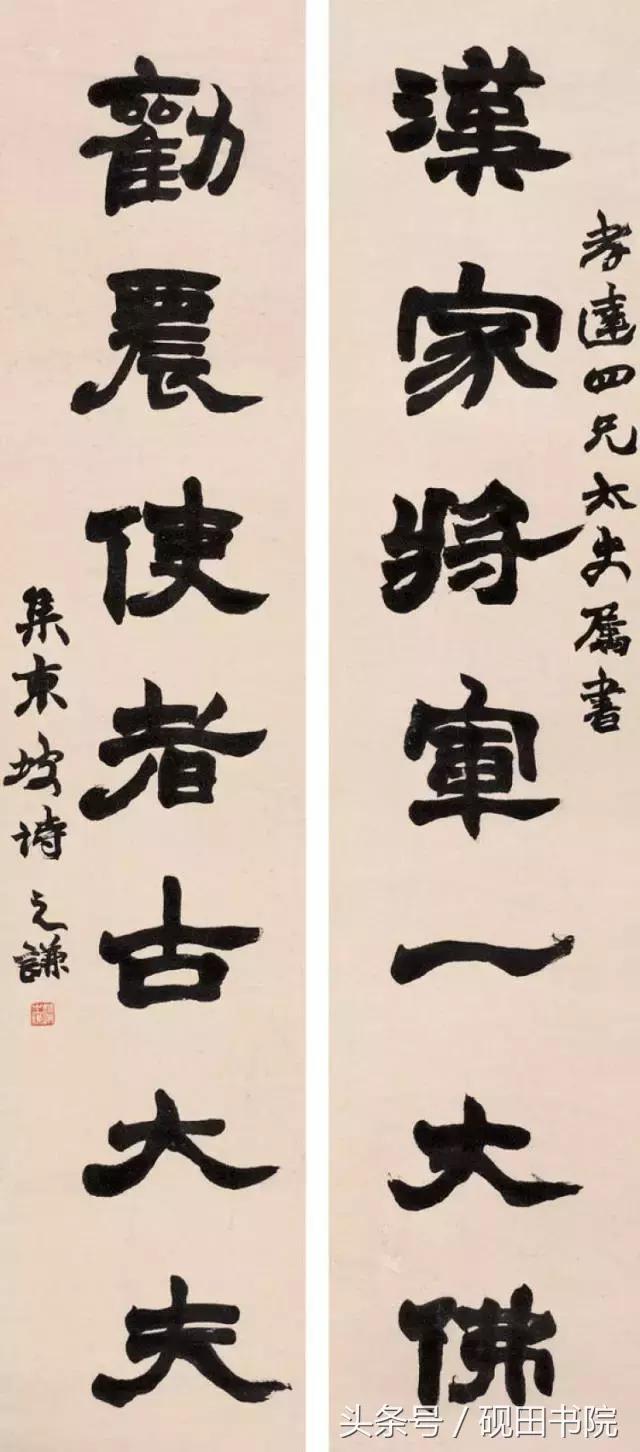 孝達四兄太史屬書
漢家將軍一大佛
勸農使者古大夫
集東坡詩 之謙
头条号 / 砚田书院